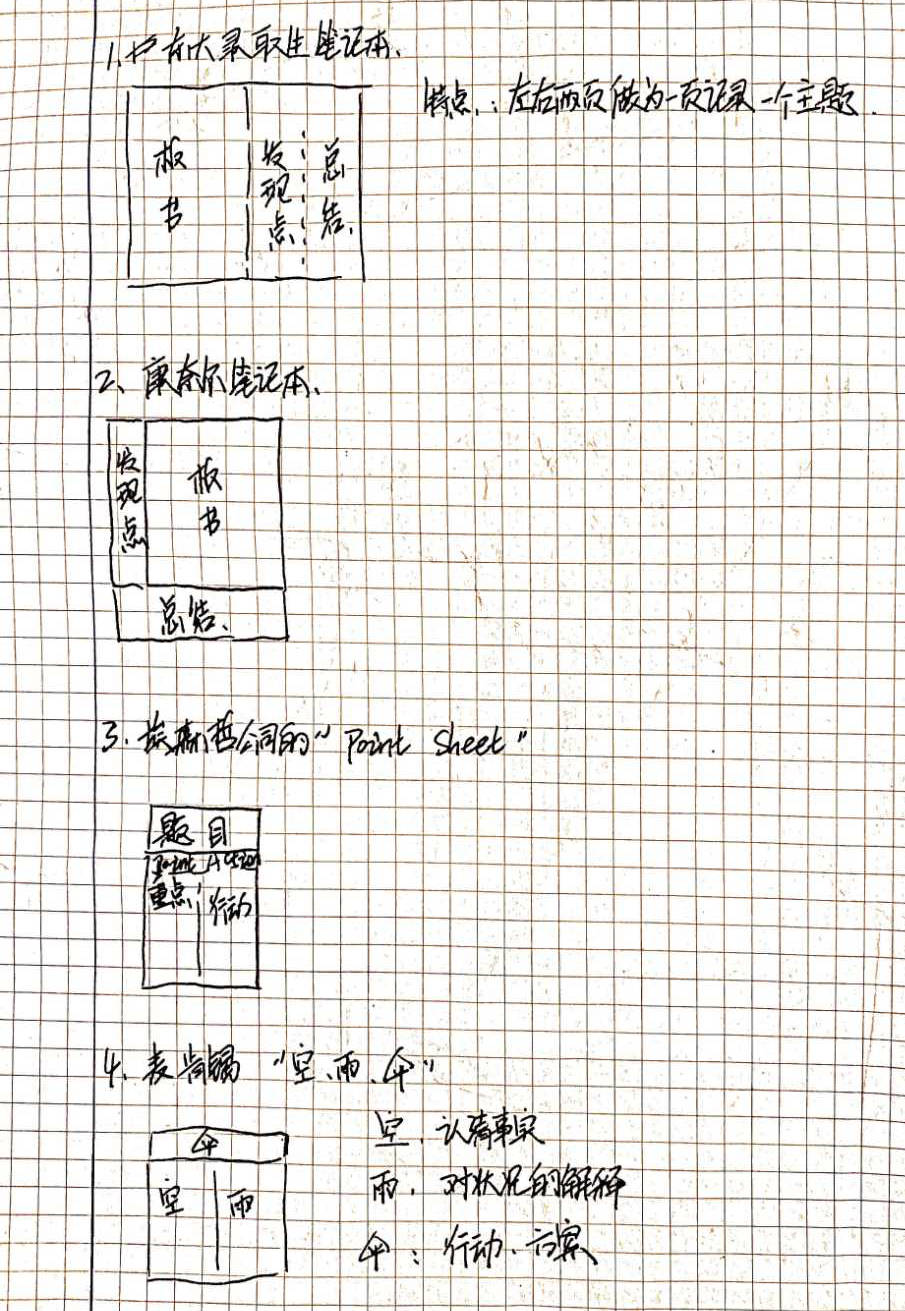 1.东大录取生笔记本.
特点:左右两页做为一页记录一个主题.
板书
发现点
总结.
2、康奈尔笔记本、
发现点
板书
总结、
3.埃森哲公司的“Point Sheet”
题目
Point Action
重点 行动
4.麦肯锡“空、雨、伞”
伞
空 雨
空.认清事实
雨.对状况的解释
伞:行动、方案